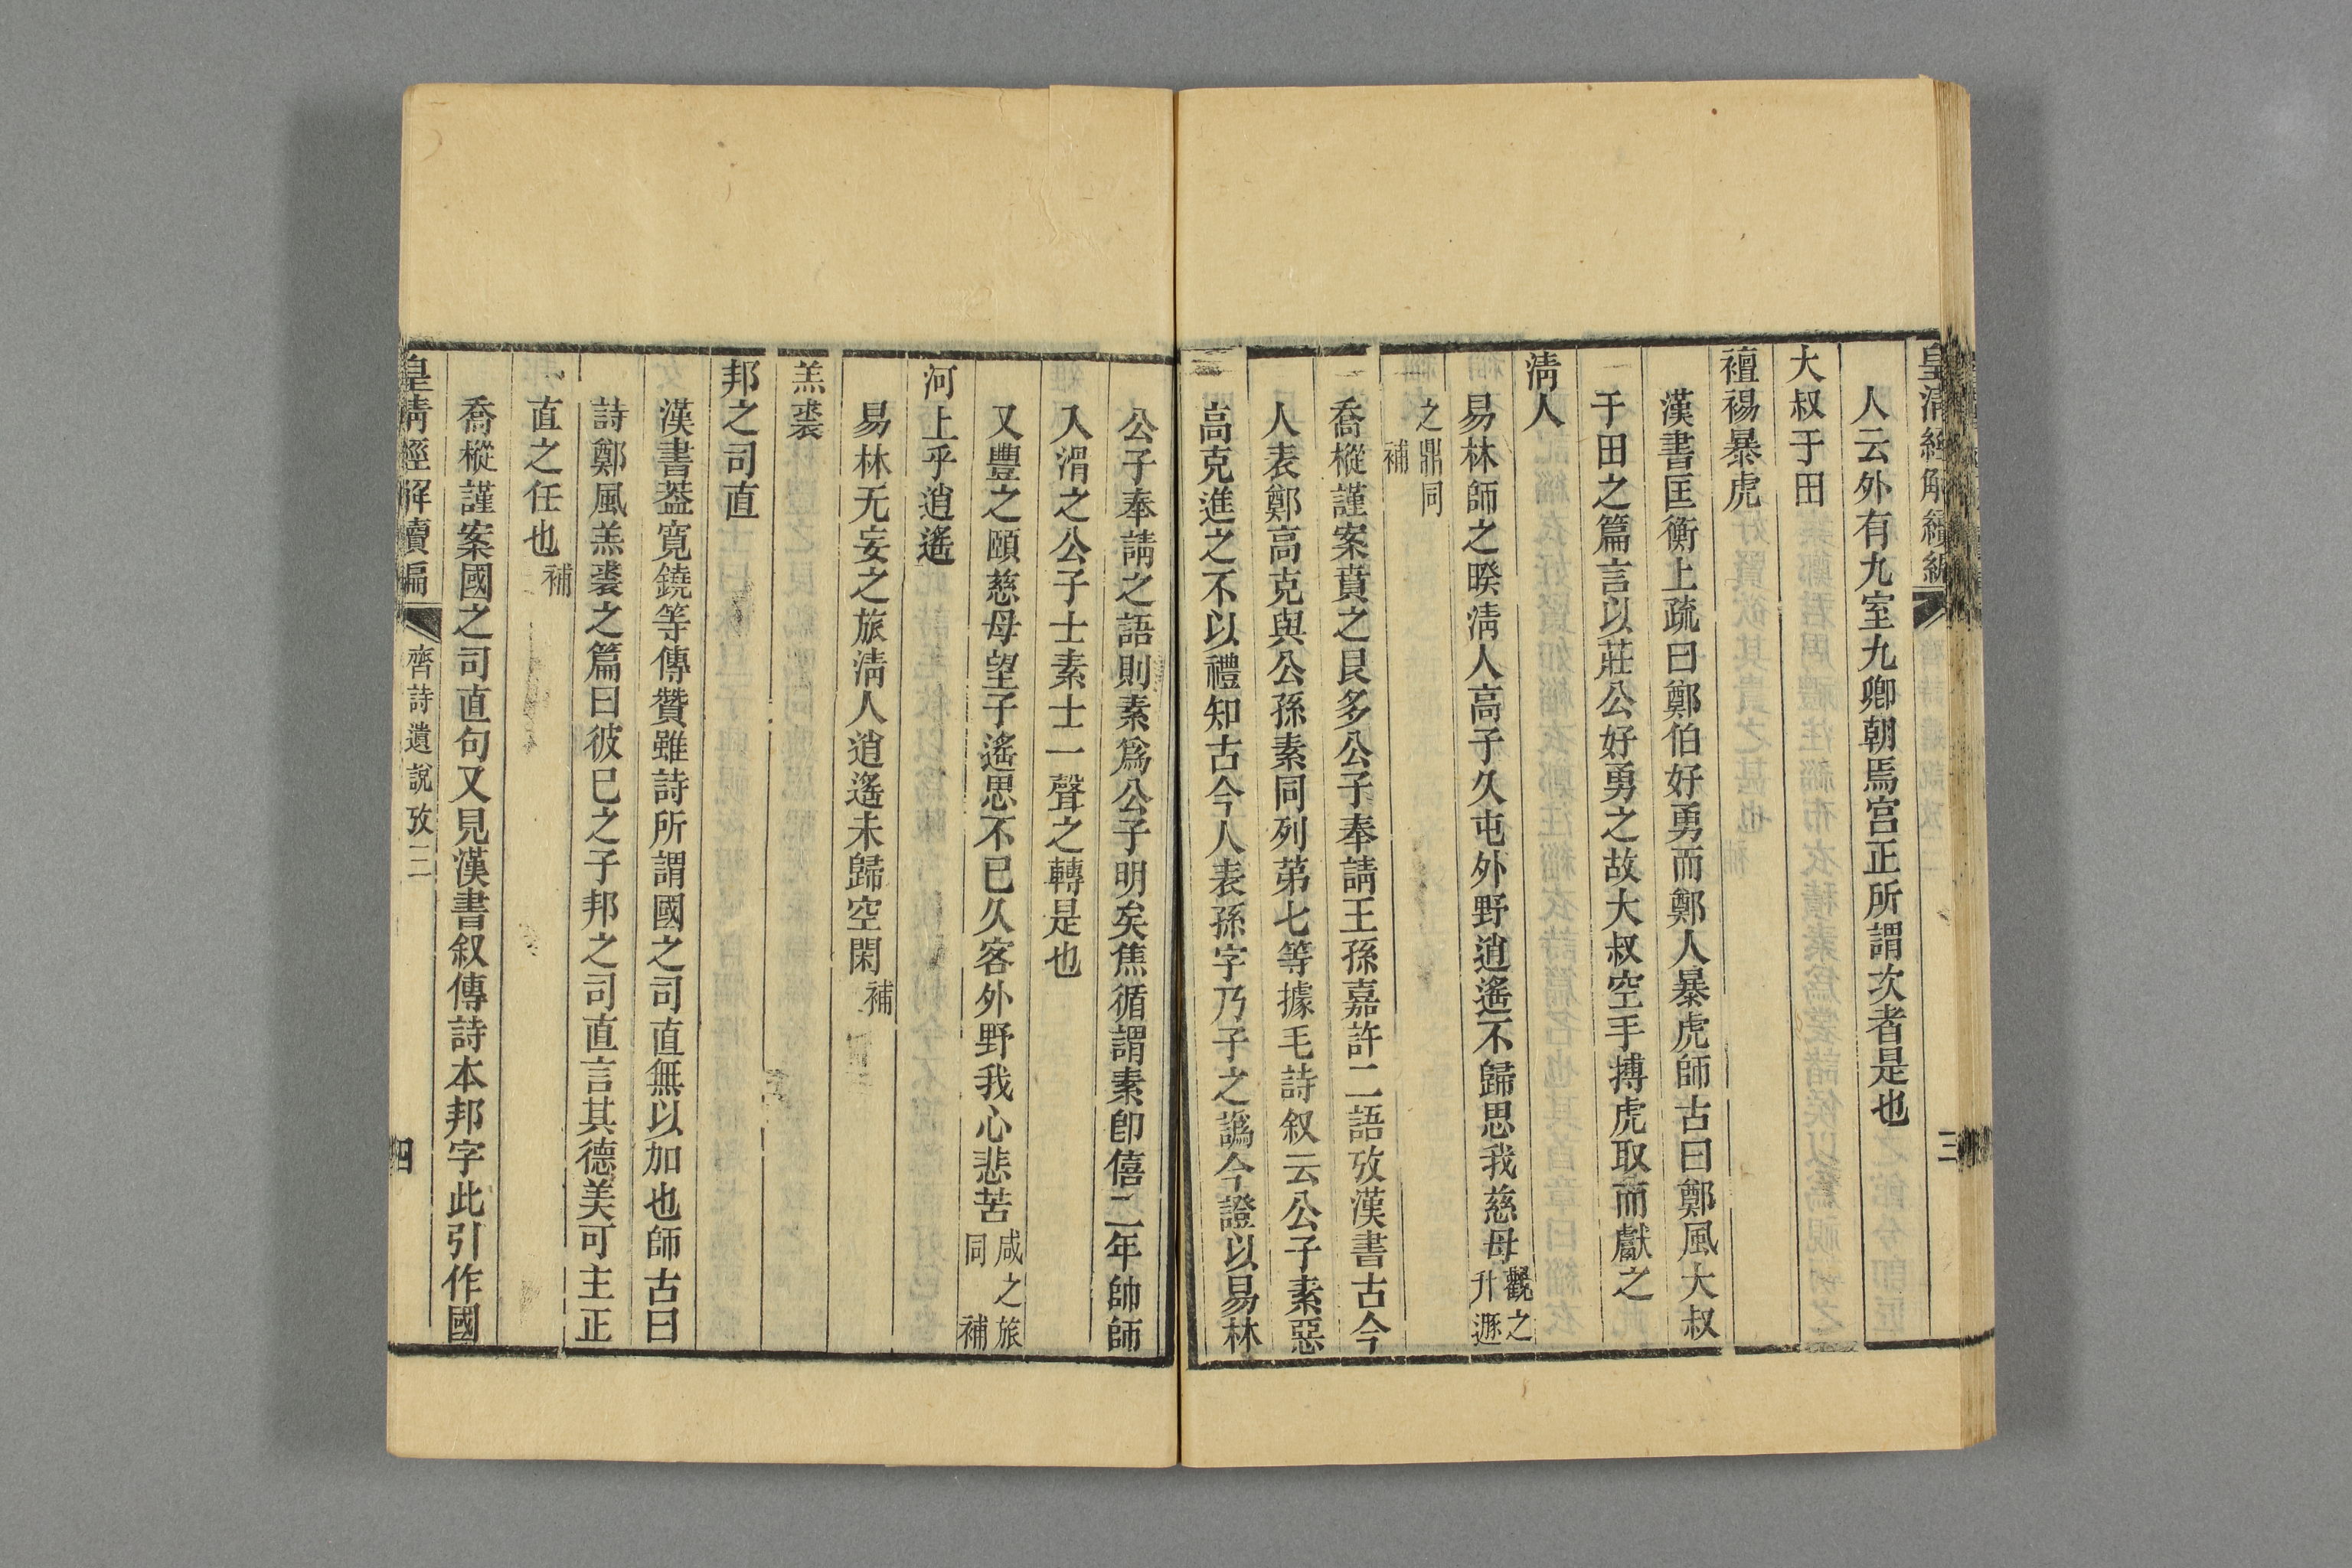 皇清經解續編
三
人云外有九室九卿朝焉宮正所謂次者是也
大叔于田
襢裼暴虎
漢書匡衡上疏曰鄭伯好勇而鄭人暴虎師古曰鄭風大叔
于田之篇言以莊公好勇之故大叔空手搏虎取而獻之
淸人
易林師之睽淸人高子久屯外野逍遙不歸思我慈母觀之升遯
之鼎同補
喬樅謹案賁之艮多公子奉請王孫嘉許二語攷漢書古今
人表鄭高克與公孫素同列第七等據毛詩叙云公子素惡
高克進之不以禮知古今人表孫字乃子之譌今證以易林
公子奉請之語則素爲公子明矣焦循謂素卽僖二年帥師
入滑之公子士素士一聲之轉是也
又豐之頤慈母望子遙思不已久客外野我心悲苦咸之旅同補
河上乎逍遙
易林无妄之旅淸人逍遙未歸空閑補
羔裘
邦之司直
漢書葢寬鐃等傳贊雖詩所謂國之司直無以加也師古曰
詩鄭風羔裘之篇曰彼已之子邦之司直言其德美可主正
直之任也補
喬樅謹案國之司直句又見漢書叙傳詩本邦字此引作國
皇清經解續編
齊詩遺說攷二
四